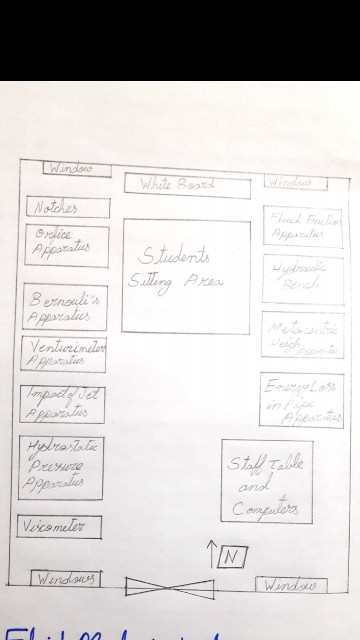 Window
White Board
Window
Notches
Orfice
Apparatus
Bernouli's
Apparatus
Venturimeter
Apparatus
Impact of Jet
Apparatus
Hydrostatic
Pressure
Apparatus
Viscometer
Windows
Students
Sitting Area
Fluid Friction
Apparatus
Hydraulic
Bench
Metacentric
Energy Loss
in Pipe
Apparatus
Staff Table
and
Computers
N
Window